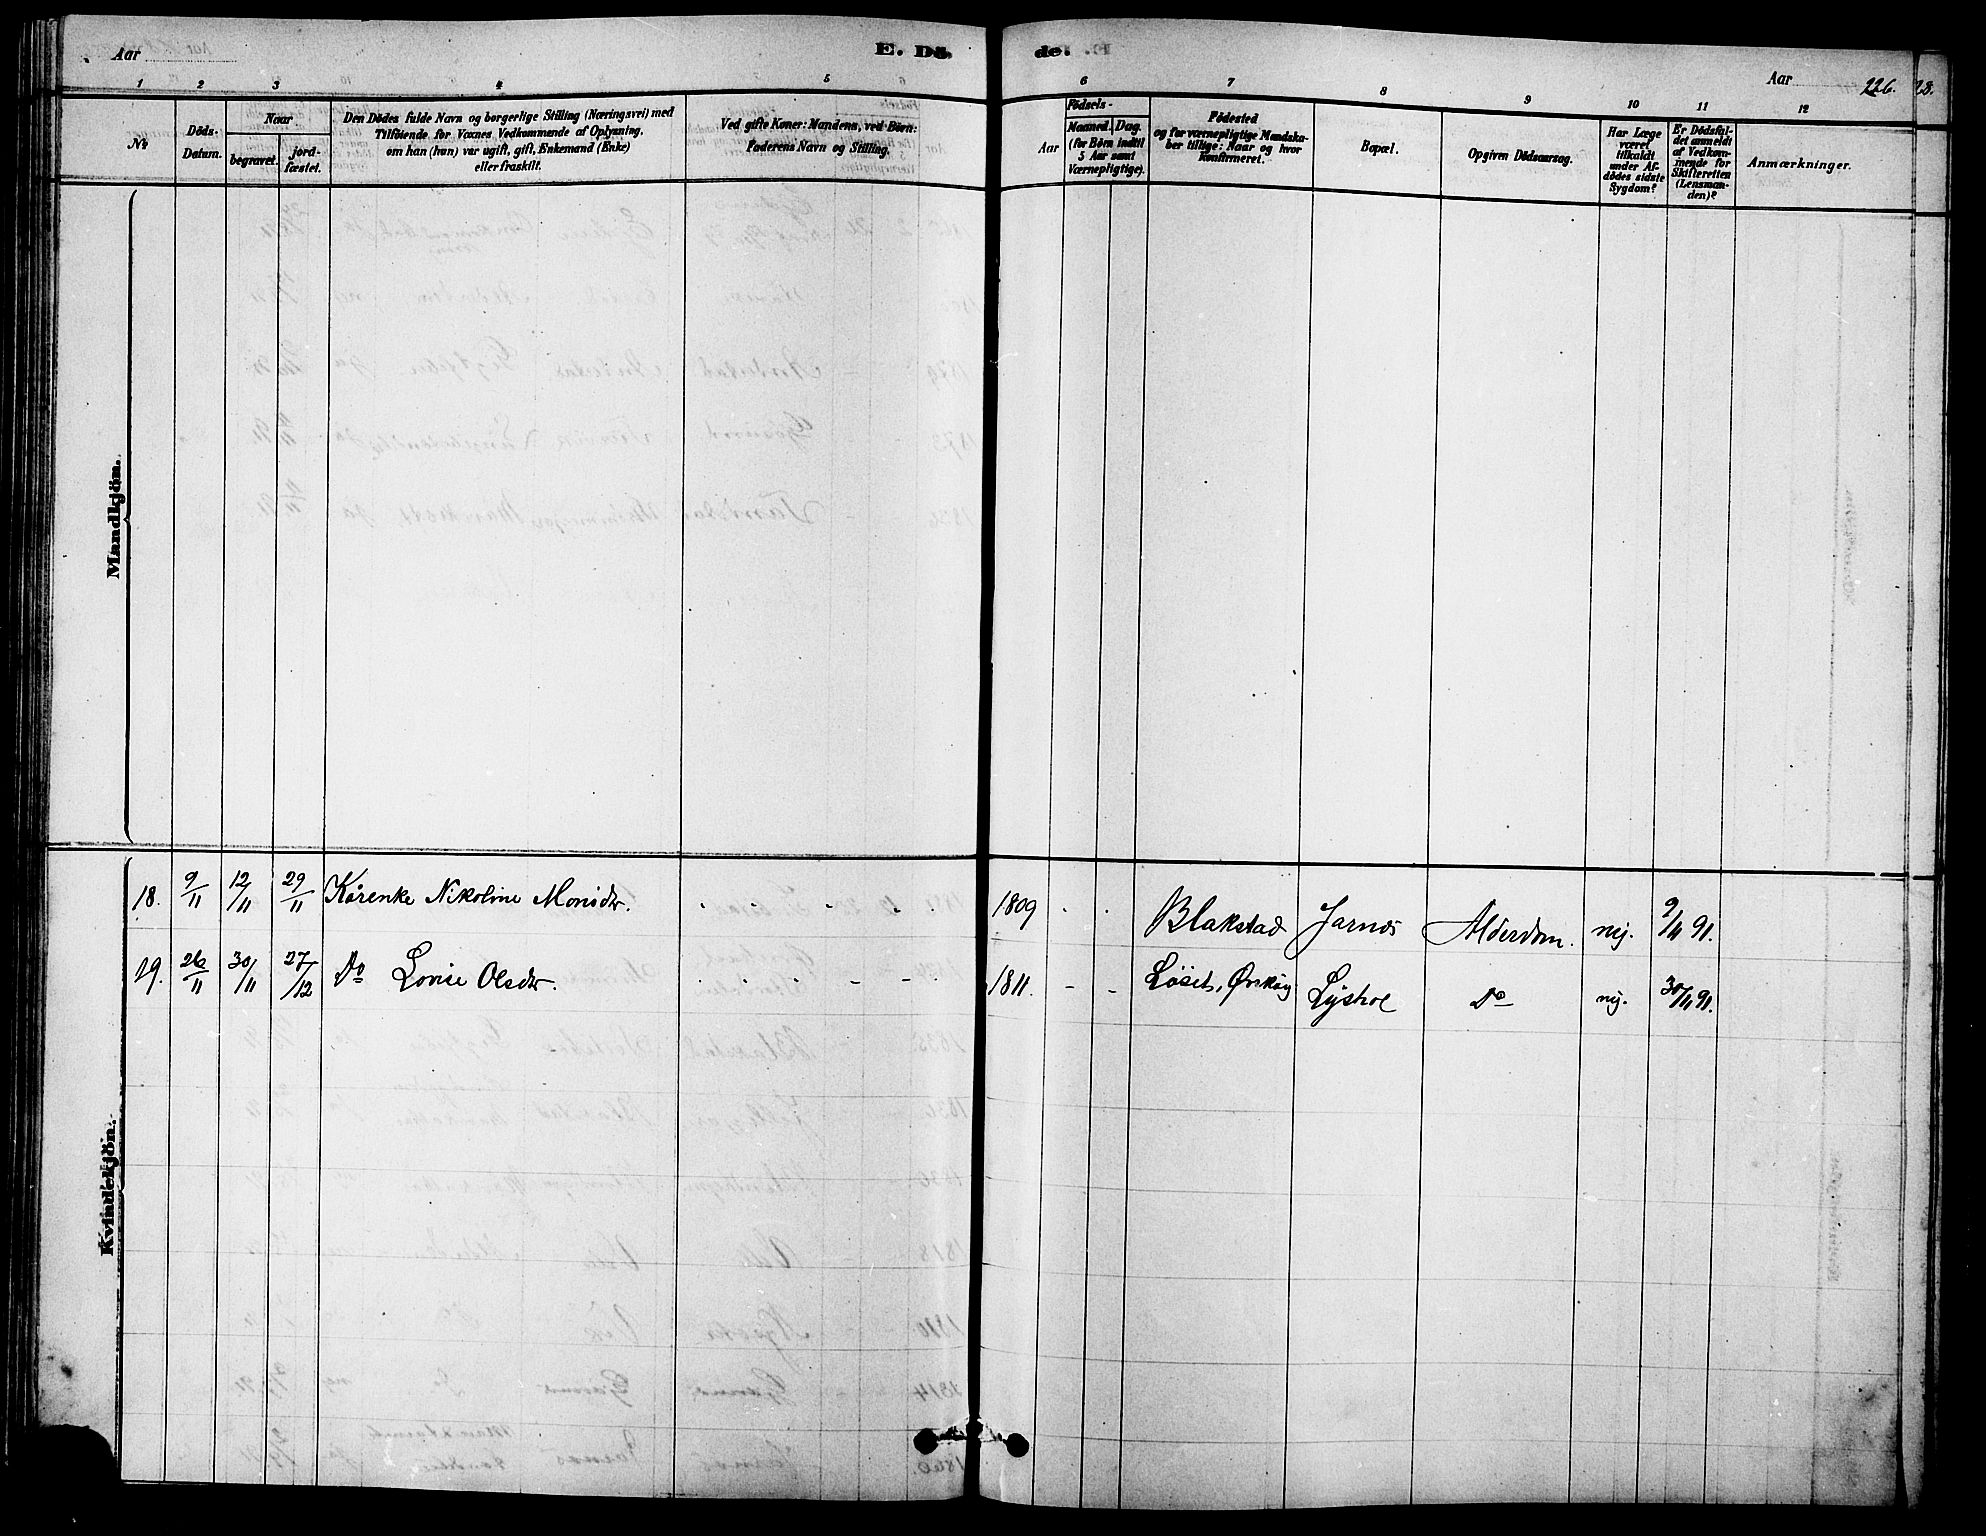 Aar
E. Dö-
de.
Aar
226.
28.
1 2 3 4 5
6 7 8 9 10 11 12
No
Döds-
Datum.
Naar
begravet.
jord-
fæstet.
Den Dödes fulde Navn og borgerlige Stilling (Næringsvei) med
Tilföiende for Voxnes Vedkommende af Oplysning,
om han (hun) var ugift, gift, Enkemand (Enke)
eller fraskilt.
Ved gifte Koner: Mandens, ved Börn:
Faderens Navn og Stilling.
Födsels-
Aar
Maaned.
Dag.
(for Börn indtil
5 Aar samt
Værnepligtige).
Födested
og for værnepligtige Mandska-
ber tillige: Naar og hvor
Konfirmeret.
Bopæl.
Opgiven Dödsaarsag.
Har Læge
været
tilkaldt
under Af-
dödes sidste
Sygdom?
Er Dödsfal-
det anmeldt
af Vedkom-
mende for
Skifteretten
(Lensman-
den)?
Anmærkninger.
Mandkjön.
Kvindekjön.
18. 9/11 12/11 29/11 Karenke Nikoline Monsdtr. 1809 Blakstad Jarnes Alderdom. nej. 9/11 91.
19. 26/11 30/11 27/12 Do Lovise Olsdtr. 1811. - - Löset, Ørskog Lyshol Do nej. 30/11 91.